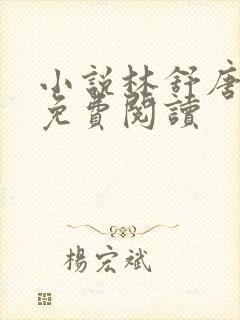 小說林舒唐
免費閱讀
楊宏斌